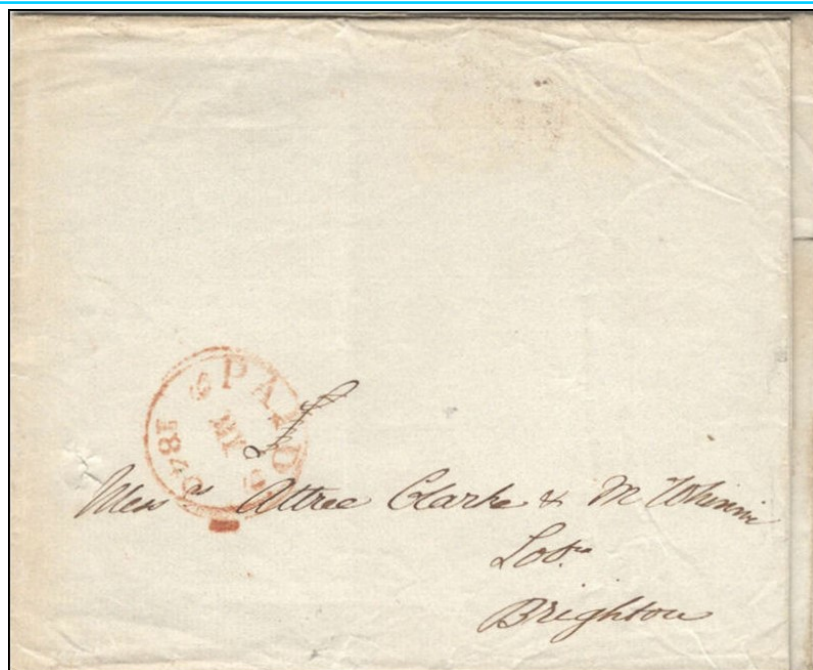 PAID
MY
1840
Messrs Attree Clarke & McWhinnie
Brighton